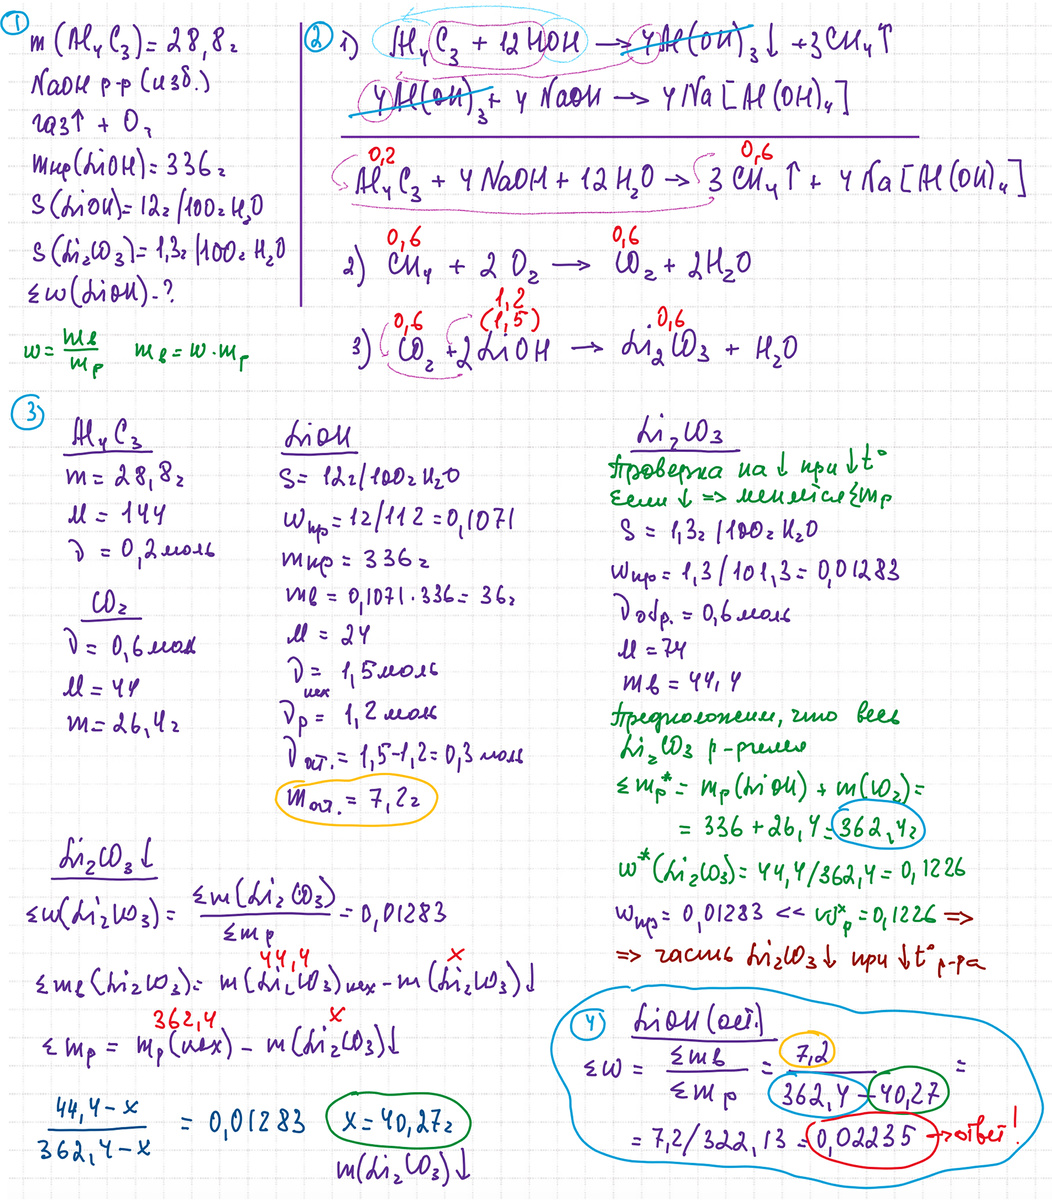 1
m(Al₄C₃) = 28,8г
NaOH р-р (изб.)
газ↑ + O₂
mнр(LiOH) = 336г
S(LiOH) = 12г/100г H₂O
S(Li₂CO₃) = 1,3г/100г H₂O
Σw(LiOH) - ?
w = mв/mр   mв = w · mр
2
1) Al₄C₃ + 12HOH → 4Al(OH)₃↓ + 3CH₄↑
4Al(OH)₃ + 4NaOH → 4Na[Al(OH)₄]
0,2   0,6
Al₄C₃ + 4NaOH + 12H₂O → 3CH₄↑ + 4Na[Al(OH)₄]
0,6   0,6
2) CH₄ + 2O₂ → CO₂ + 2H₂O
1,2
0,6   (1,5)   0,6
3) CO₂ + 2LiOH → Li₂CO₃ + H₂O
3
Al₄C₃
m = 28,8г
M = 144
ν = 0,2моль
CO₂
ν = 0,6моль
M = 44
m = 26,4г
LiOH
S = 12г/100г H₂O
wнр = 12/112 = 0,1071
mнр = 336г
mв = 0,1071 · 336 = 36г
M = 24
ν исх = 1,5моль
νр = 1,2моль
νост. = 1,5-1,2 = 0,3моль
mост. = 7,2г
Li₂CO₃
Проверка на ↓ при ↓t°
Если ↓ => меняется Σmр
S = 1,3г/100г H₂O
wнр = 1,3/101,3 = 0,01283
νобр. = 0,6моль
M = 74
mв = 44,4
Предположим, что весь
Li₂CO₃ р-рился
Σmр* = mр(LiOH) + m(CO₂) =
= 336 + 26,4 = 362,4г
w*(Li₂CO₃) = 44,4/362,4 = 0,1226
wнр = 0,01283 << wр* = 0,1226 =>
=> часть Li₂CO₃↓ при ↓t° р-ра
Li₂CO₃↓
Σw(Li₂CO₃) = Σm(Li₂CO₃)/Σmр = 0,01283
44,4   x
Σmв(Li₂CO₃) = m(Li₂CO₃)исх - m(Li₂CO₃)↓
362,4   x
Σmр = mр(исх) - m(Li₂CO₃)↓
(44,4 - x)/(362,4 - x) = 0,01283   x = 40,27г
m(Li₂CO₃)↓
4
LiOH(ост.)
Σw = Σmв/Σmр = 7,2/(362,4 - 40,27) =
= 7,2/322,13 = 0,02235 → ответ!